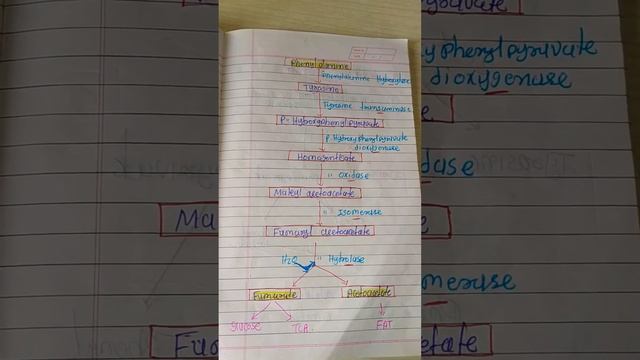 Phenylalanine
Phenylalanine Hydroxylase
Tyrosine
Tyrosine transaminase
P-Hydroxyphenylpyruvate
P. Hydroxyphenylpyruvate
dioxygenase
Homogentisate
" Oxidase
Maleyl acetoacetate
" Isomerase
Fumaryl acetoacetate
H2O
" Hydrolase
Fumarate
Acetoacetate
Glucose
TCA
FAT